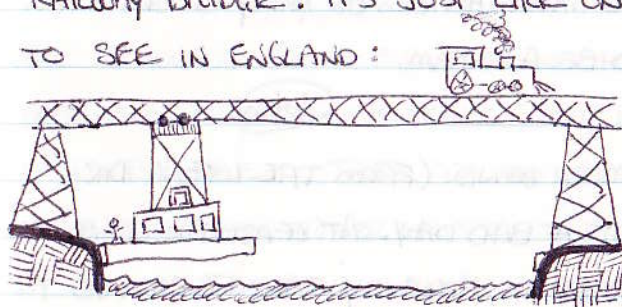 RAILWAY BRIDGE. IT'S JUST LIKE ON
TO SEE IN ENGLAND: